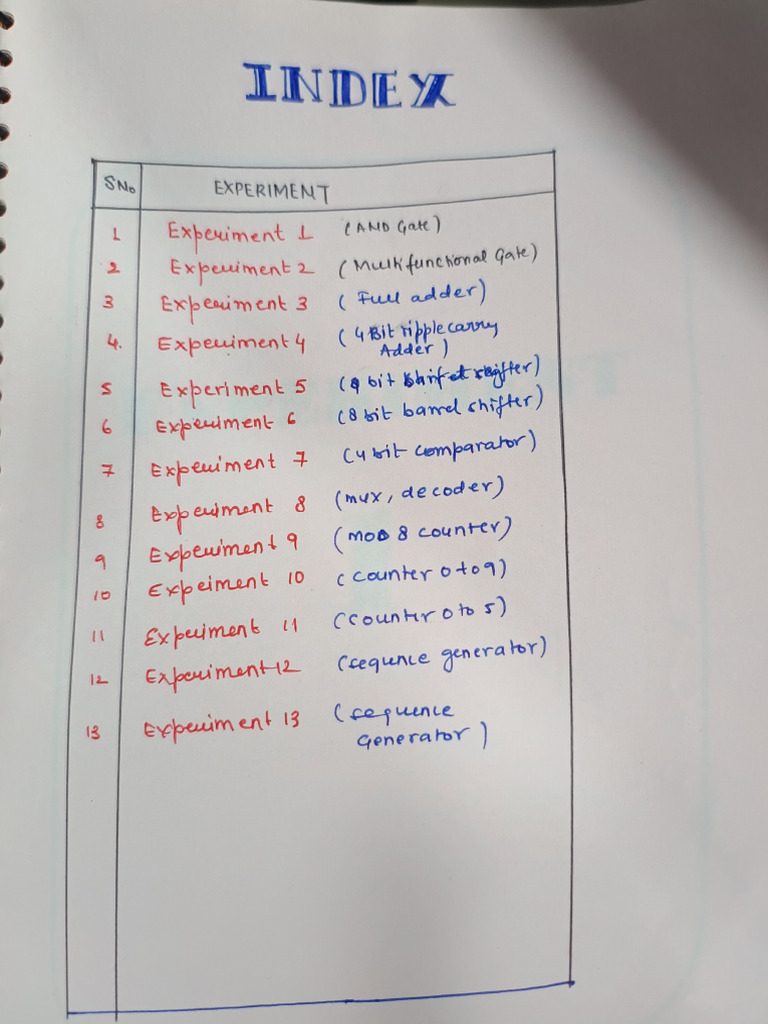 INDEX
SNo EXPERIMENT
1 Experiment 1 (AND Gate)
2 Experiment 2 (Multifunctional Gate)
3 Experiment 3 (Full adder)
4. Experiment 4 (4 Bit ripple carry
Adder)
5 Experiment 5 bit shifter)
6 Experiment 6 (8 bit barrel shifter)
7 Experiment 7 (4 bit comparator)
8 Experiment 8 (mux, decoder)
9 Experiment 9 (mod 8 counter)
10 Expeiment 10 (counter 0 to 9)
11 Experiment 11 (counter 0 to 5)
12 Experiment 12 (sequnce generator)
13 Experiment 13 (sequence
Generator)